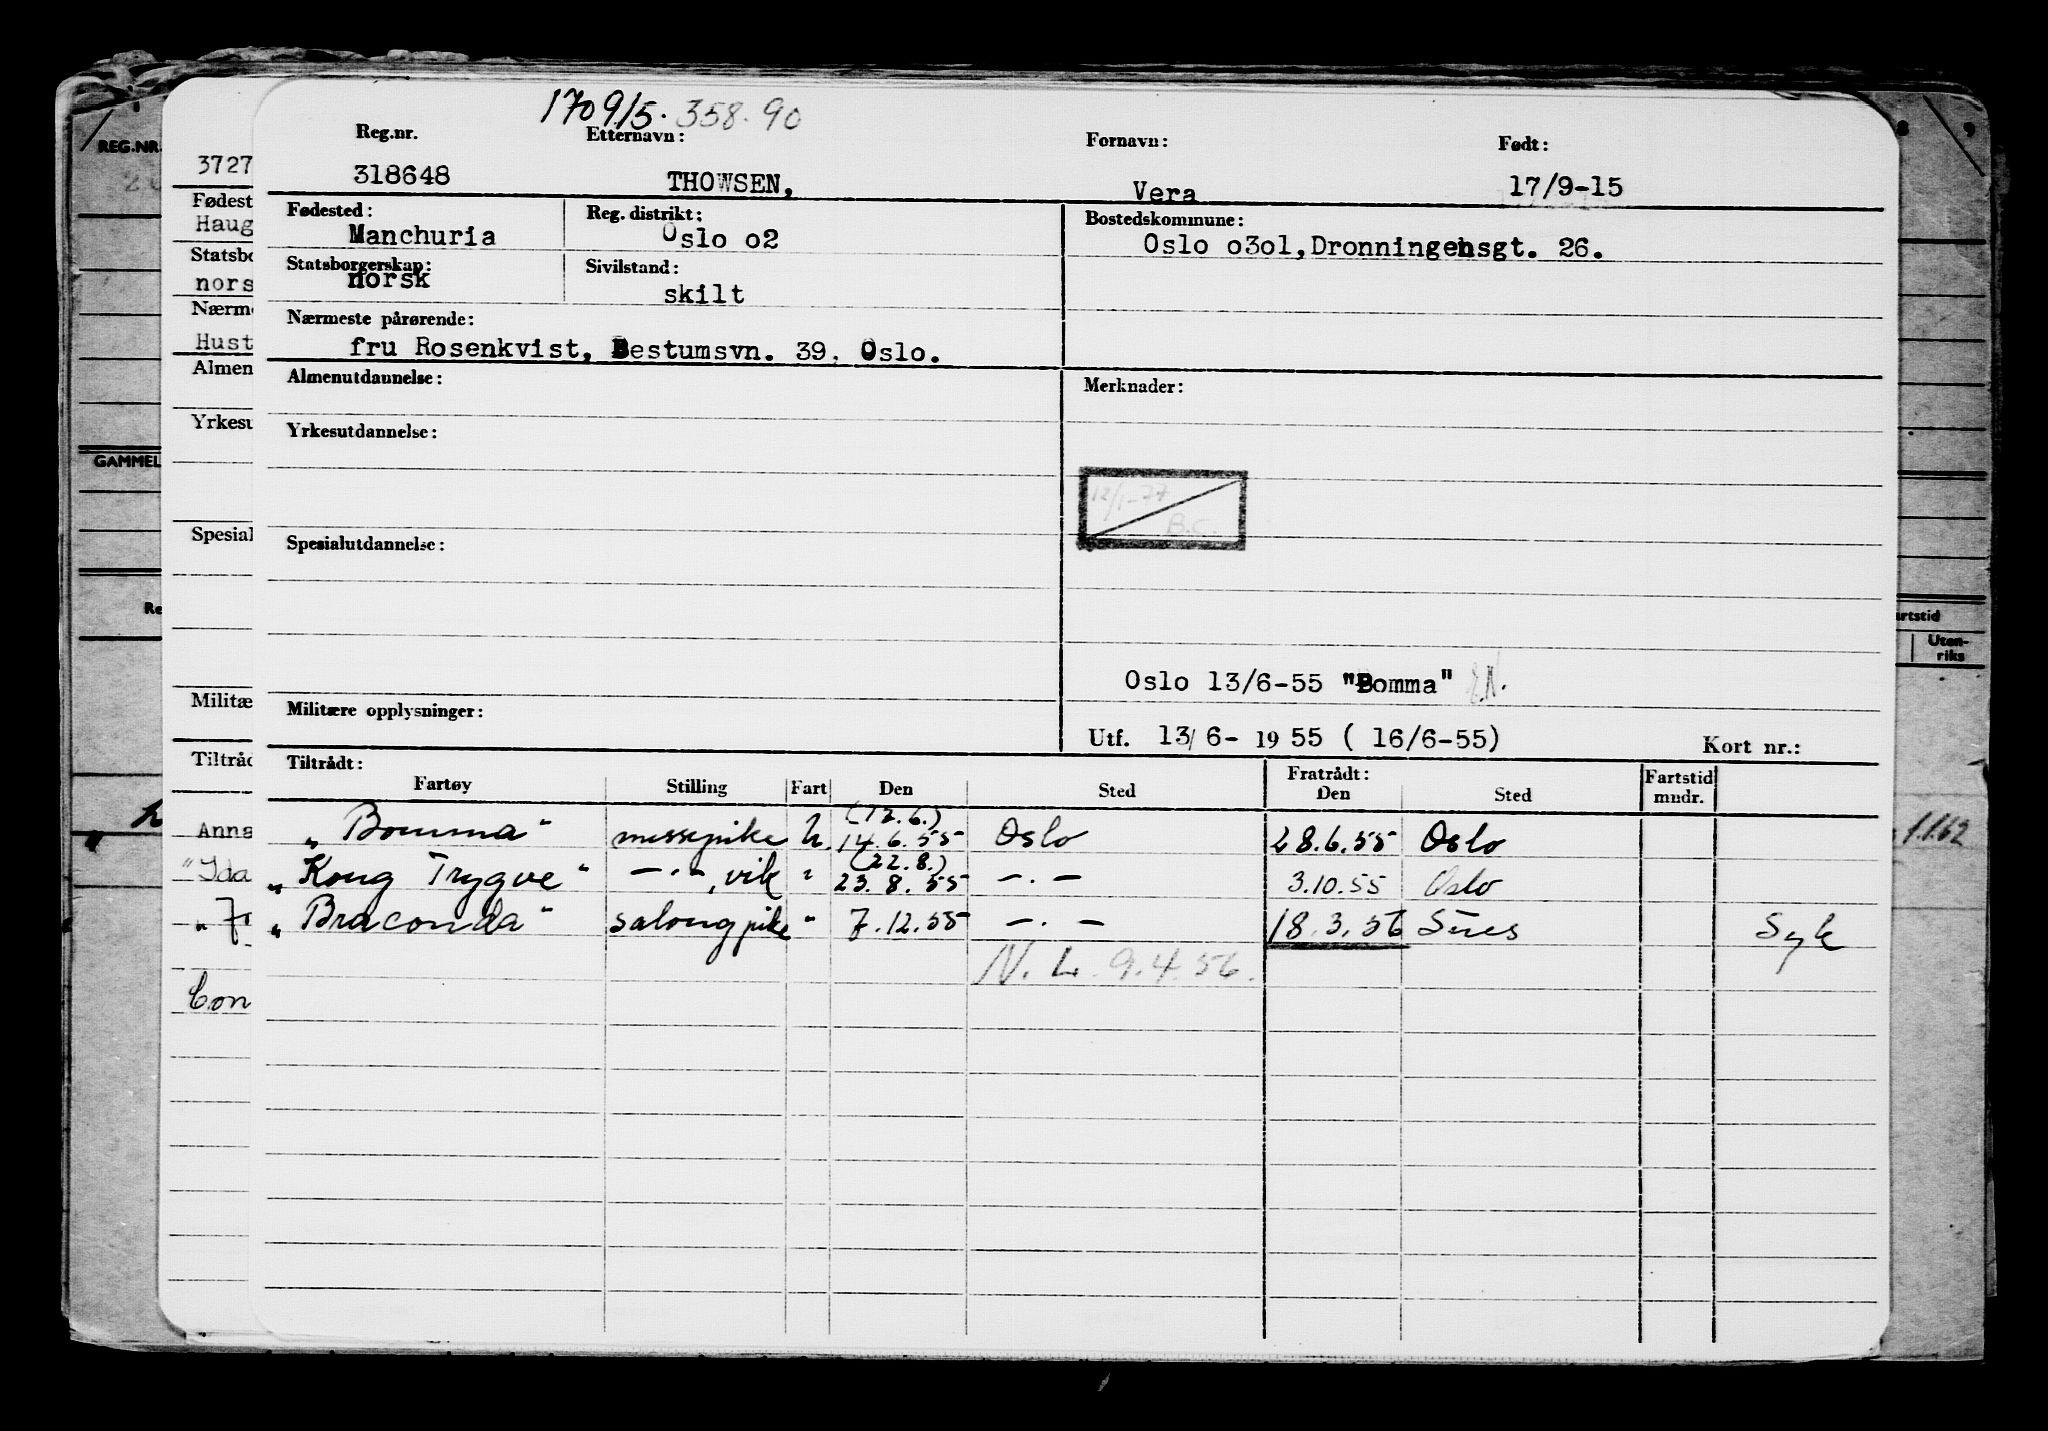 170915. 358.90
Reg.nr. Etternavn: Fornavn: Født:
318648 THOWSEN, Vera 17/9-15
Fødested: Reg. distrikt: Bostedskommune:
Manchuria Oslo o2 Oslo o3ol, Dronningensgt. 26.
Statsborgerskap: Sivilstand:
norsk skilt
Nærmeste pårørende:
fru Rosenkvist, Bestumsvn. 39, Oslo.
Almenutdannelse: Merknader:
Yrkesutdannelse:
12/1-77
B.C.
Spesialutdannelse:
Oslo 13/6-55 "Bomma"
Militære opplysninger:
Utf. 13/6- 1955 ( 16/6-55) Kort nr.:
Tiltrådt: Fratrådt: Fartstid
Fartøy Stilling Fart Den Sted Den Sted mndr.
(12.6.)
„Bomma" messepike U. 14.6.55 Oslo 28.6.55 Oslo
(22.8.)
„Kong Trygve" —.—, vik " 23.8.55 —.— 3.10.55 Oslo
„Braconda" salongpike " 7.12.55 —.— 18.3.56 Sues Syk
N. L. 9.4.56.
REG.NR.
3727
Fødest
Haug
Statsbo
nors
Nærme
Hust
Almen
Yrkesu
GAMMEL
Spesial
Re
Militæ
Tiltråd
Anna
"Ida
Con
8 9
artstid
Uten-
riks
1.1.62